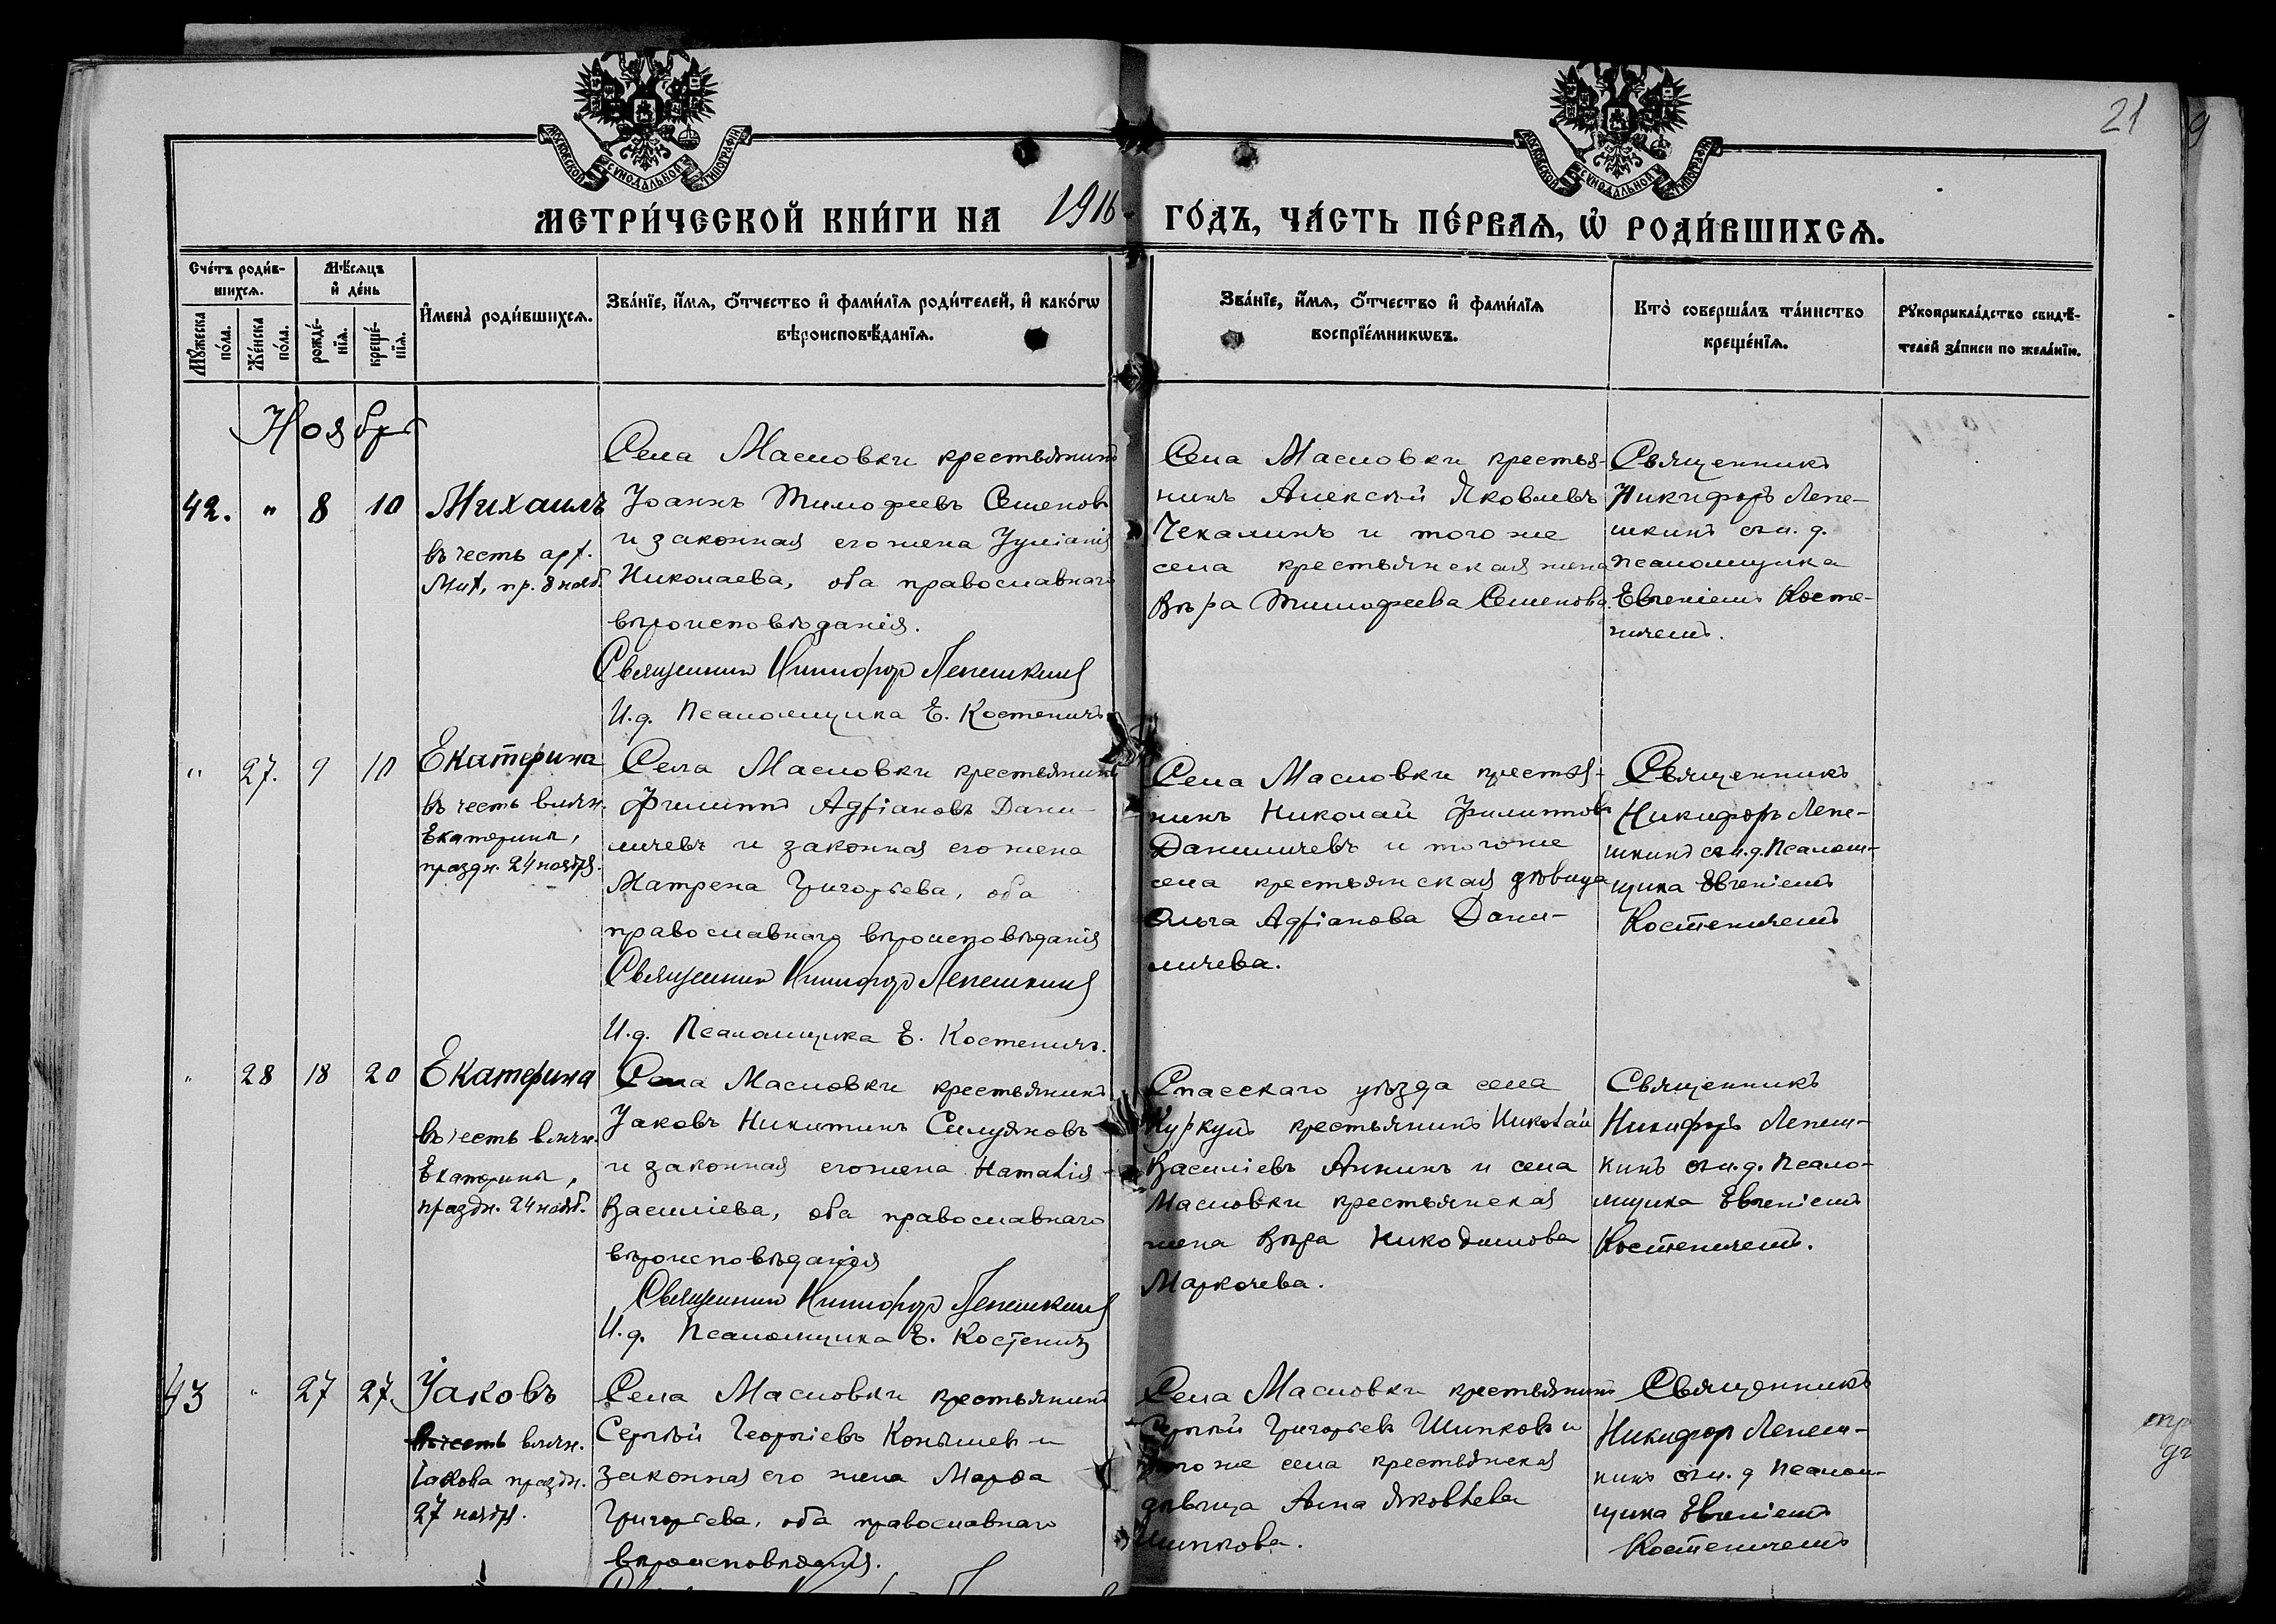 21
9
МОСКОВСКОЙ СѴНОДАЛЬНОЙ ТИПОГРАФІИ
МОСКОВСКОЙ СѴНОДАЛЬНОЙ ТИПОГРАФІИ
МЕТРИ́ЧЕСКОЙ КНИ́ГИ НА 1916 ГО́ДЪ, ЧА́СТЬ ПЕ́РВАѦ, Ѡ҆ РОДИ́ВШИХСѦ.
Сче́тъ роди́в-
шихсѧ.
Мꙋ́жеска по́ла.
Же́нска по́ла.
Мѣ́сѧцъ
и҆ де́нь
рожде́-
нїѧ.
креще́-
нїѧ.
И҆мена̀ роди́вшихсѧ.
Зва́нїе, и҆́мѧ, ѻ҆́тчество и҆ фами́лїѧ роди́телей, и҆ како́гѡ
вѣроисповѣ́данїѧ.
Зва́нїе, и҆́мѧ, ѻ҆́тчество и҆ фами́лїѧ
воспрїе́мникѡвъ.
Кто̀ соверша́лъ та́инство
креще́нїѧ.
Рꙋкоприкла́дство свидѣ́-
телей за́писи по жела́нїю.
Ноябрь
42. " 8 10
Михаилъ
въ честь арх.
Мих, пр. 8 нояб.
Села Масловки крестьянинъ
Іоаннъ Тимофеевъ Семеновъ
и законная его жена Іуліанія
Николаева, оба православнаго
вѣроисповѣданія.
Священникъ Никифоръ Лепешкинъ
И.д. Псаломщика Е. Костеничъ
Села Масловки крестья-
нинъ Алексѣй Яковлевъ
Чекалинъ и того же
села крестьянская жена
Вѣра Тимофеева Семенова.
Священникъ
Никифоръ Лепе-
шкинъ съ и. д.
псаломщика
Евгеніемъ Косте-
ничемъ.
" 27. 9 10
Екатерина
въ честь влмч.
Екатерины,
праздн. 24 ноября.
Села Масловки крестьянинъ
Филиппъ Адріановъ Дани-
личевъ и законная его жена
Матрена Григорьева, оба
православнаго вѣроисповѣданія
Священникъ Никифоръ Лепешкинъ
И.д. Псаломщика Е. Костеничъ.
Села Масловки крестья-
нинъ Николай Филипповъ
Даниличевъ и того же
села крестьянская дѣвица
Ольга Адріанова Дани-
личева.
Священникъ
Никифоръ Лепе-
шкинъ съ и.д. Псалом-
щика Евгеніемъ
Костеничемъ
" 28 18 20
Екатерина
въ честь влмч.
Екатерины,
праздн. 24 нояб.
Села Масловки крестьянинъ
Іаковъ Никитинъ Силуяновъ
и законная его жена Наталія
Василіева, оба православнаго
вѣроисповѣданія
Священникъ Никифоръ Лепешкинъ
И.д. Псаломщика Е. Костеничъ
Спасскаго уѣзда села
Куркуль крестьянинъ Николай
Василіевъ Аникинъ и села
Масловки крестьянская
жена Вѣра Никодимова
Маркочева.
Священникъ
Никифоръ Лепеш-
кинъ съ и.д. Псало-
мщика Евгеніемъ
Костеничемъ.
43 " 27 27.
Іаковъ
въ честь влмч.
Іакова праздн.
27 ноября.
Села Масловки крестьянинъ
Сергѣй Георгіевъ Конышев и
законная его жена Марѳа
Григорьева, оба православнаго
вѣроисповѣданія.
Села Масловки крестьянинъ
Сергѣй Григорьевъ Шипковъ и
того же села крестьянская
дѣвица Анна Яковлева
Шипкова.
Священникъ
Никифоръ Лепеш-
кинъ съ и.д Псалом-
щика Евгеніемъ
Костеничемъ